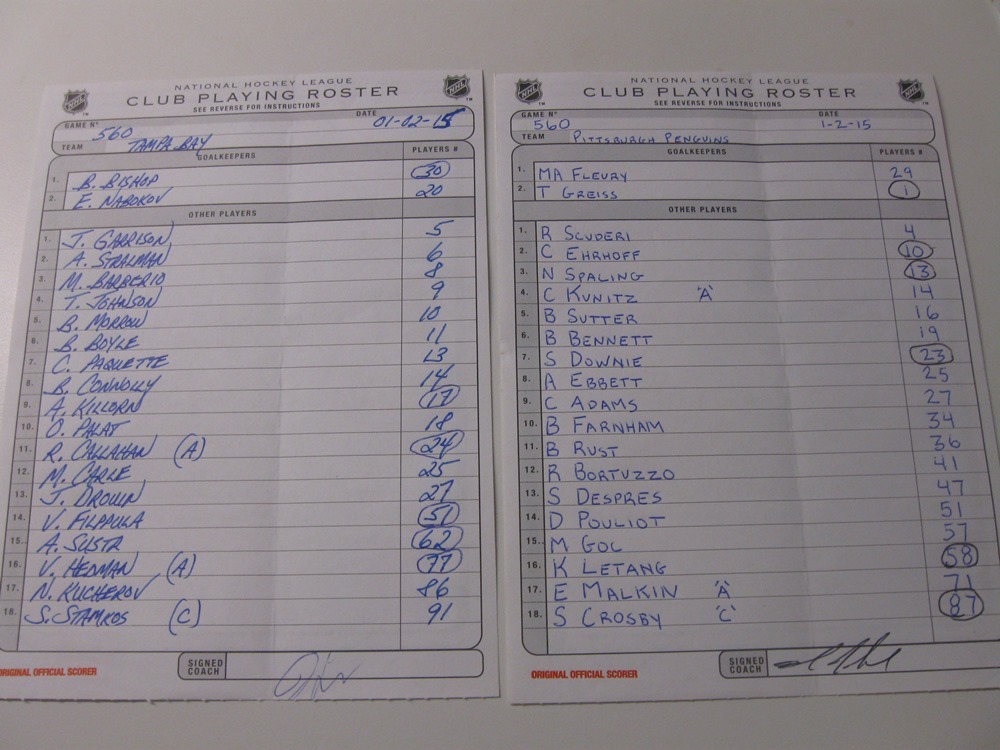 NATIONAL HOCKEY LEAGUE
CLUB PLAYING ROSTER
SEE REVERSE FOR INSTRUCTIONS
NHL
NHL
TM
TM
GAME Nº 560 DATE 01-02-15
TEAM TAMPA BAY
GOALKEEPERS PLAYERS #
1. B. BISHOP 30
2. E. NABOKOV 20
OTHER PLAYERS
1. J. GARRISON 5
2. A. STRALMAN 6
3. M. BARBERIO 8
4. T. JOHNSON 9
5. B. MORROW 10
6. B. BOYLE 11
7. C. PAQUETTE 13
8. B. CONNOLLY 14
9. A. KILLORN 17
10. O. PALAT 18
11. R. CALLAHAN (A) 24
12. M. CARLE 25
13. J. DROUIN 27
14. V. FILPPULA 51
15. A. SUSTR 62
16. V. HEDMAN (A) 77
17. N. KUCHEROV 86
18. S. STAMKOS (C) 91
ORIGINAL OFFICIAL SCORER
SIGNED COACH
NATIONAL HOCKEY LEAGUE
CLUB PLAYING ROSTER
SEE REVERSE FOR INSTRUCTIONS
NHL
NHL
TM
TM
GAME Nº 560 DATE 1-2-15
TEAM PITTSBURGH PENGUINS
GOALKEEPERS PLAYERS #
1. MA FLEURY 29
2. T GREISS 1
OTHER PLAYERS
1. R SCUDERI 4
2. C EHRHOFF 10
3. N SPALING 13
4. C KUNITZ 'A' 14
5. B SUTTER 16
6. B BENNETT 19
7. S DOWNIE 23
8. A EBBETT 25
9. C ADAMS 27
10. B FARNHAM 34
11. B RUST 36
12. R BORTUZZO 41
13. S DESPRES 47
14. D POULIOT 51
15. M GOC 57
16. K LETANG 58
17. E MALKIN 'A' 71
18. S CROSBY 'C' 87
ORIGINAL OFFICIAL SCORER
SIGNED COACH